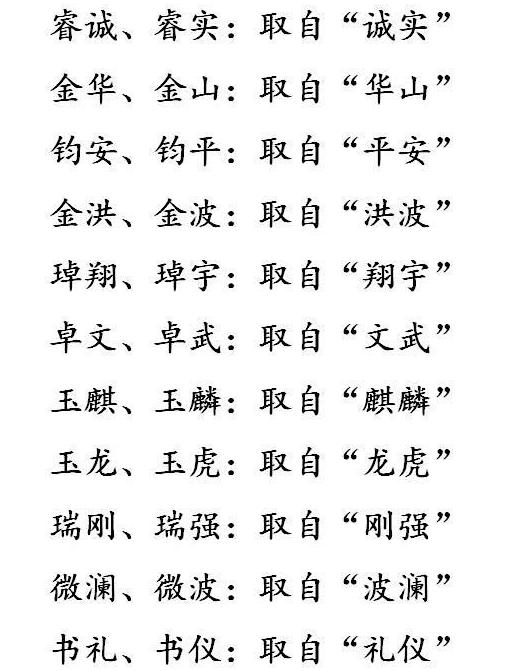 睿诚、睿实：取自“诚实”
金华、金山：取自“华山”
钧安、钧平：取自“平安”
金洪、金波：取自“洪波”
琸翔、琸宇：取自“翔宇”
卓文、卓武：取自“文武”
玉麒、玉麟：取自“麒麟”
玉龙、玉虎：取自“龙虎”
瑞刚、瑞强：取自“刚强”
微澜、微波：取自“波澜”
书礼、书仪：取自“礼仪”